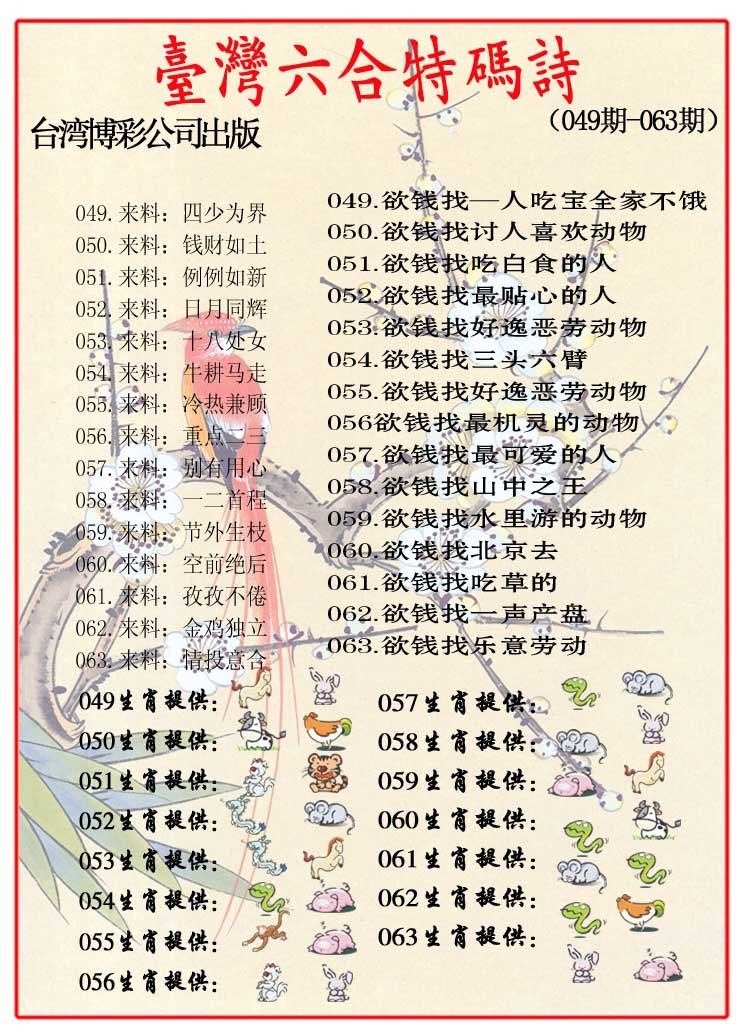 臺灣六合特碼詩
台湾博彩公司出版
（049期-063期）
049.来料：四少为界
050.来料：钱财如土
051.来料：例例如新
052.来料：日月同辉
053.来料：十八处女
054.来料：牛耕马走
055.来料：冷热兼顾
056.来料：重点二三
057.来料：别有用心
058.来料：一二首程
059.来料：节外生枝
060.来料：空前绝后
061.来料：孜孜不倦
062.来料：金鸡独立
063.来料：情投意合
049.欲钱找一人吃宝全家不饿
050.欲钱找讨人喜欢动物
051.欲钱找吃白食的人
052.欲钱找最贴心的人
053.欲钱找好逸恶劳动物
054.欲钱找三头六臂
055.欲钱找好逸恶劳动物
056欲钱找最机灵的动物
057.欲钱找最可爱的人
058.欲钱找山中之王
059.欲钱找水里游的动物
060.欲钱找北京去
061.欲钱找吃草的
062.欲钱找一声产盘
063.欲钱找乐意劳动
049生肖提供：
050生肖提供：
051生肖提供：
052生肖提供：
053生肖提供：
054生肖提供：
055生肖提供：
056生肖提供：
057生肖提供：
058生肖提供：
059生肖提供：
060生肖提供：
061生肖提供：
062生肖提供：
063生肖提供：